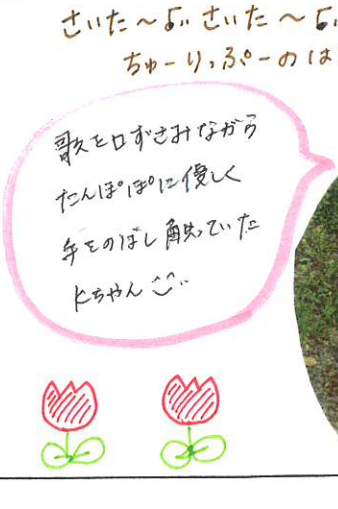 さいた～よ！！さいた～よ！！
ちゅーりっぷーのは
歌を口ずさみながら
たんぽぽに優しく
手をのばし触れていた
Kちゃん